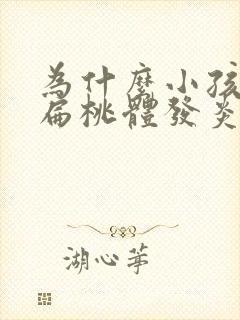 為什麼小孩
扁桃體發炎
湖心茅